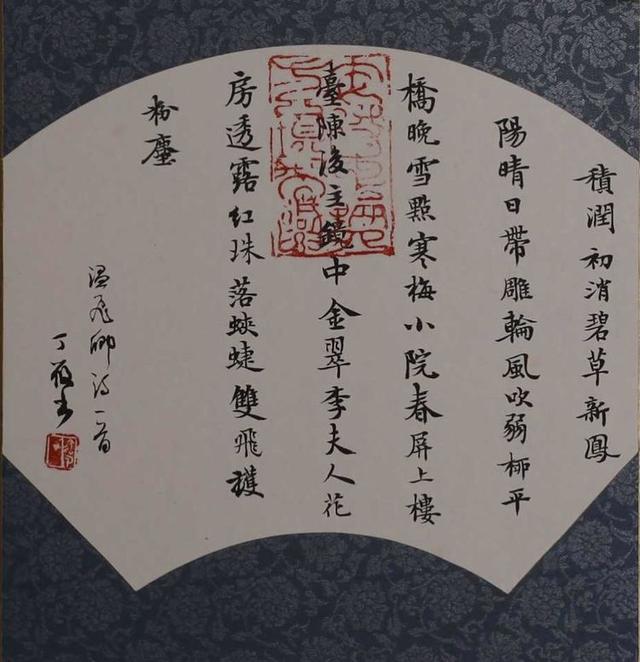 積潤初消碧草新鳳
陽晴日帶雕輪風吹弱柳平
橋晚雪點寒梅小院春屏上樓
臺陳後主鏡中金翠李夫人花
房透露紅珠落蛺蜨雙飛護
粉塵
溫飛卿詩一首
丁酉書